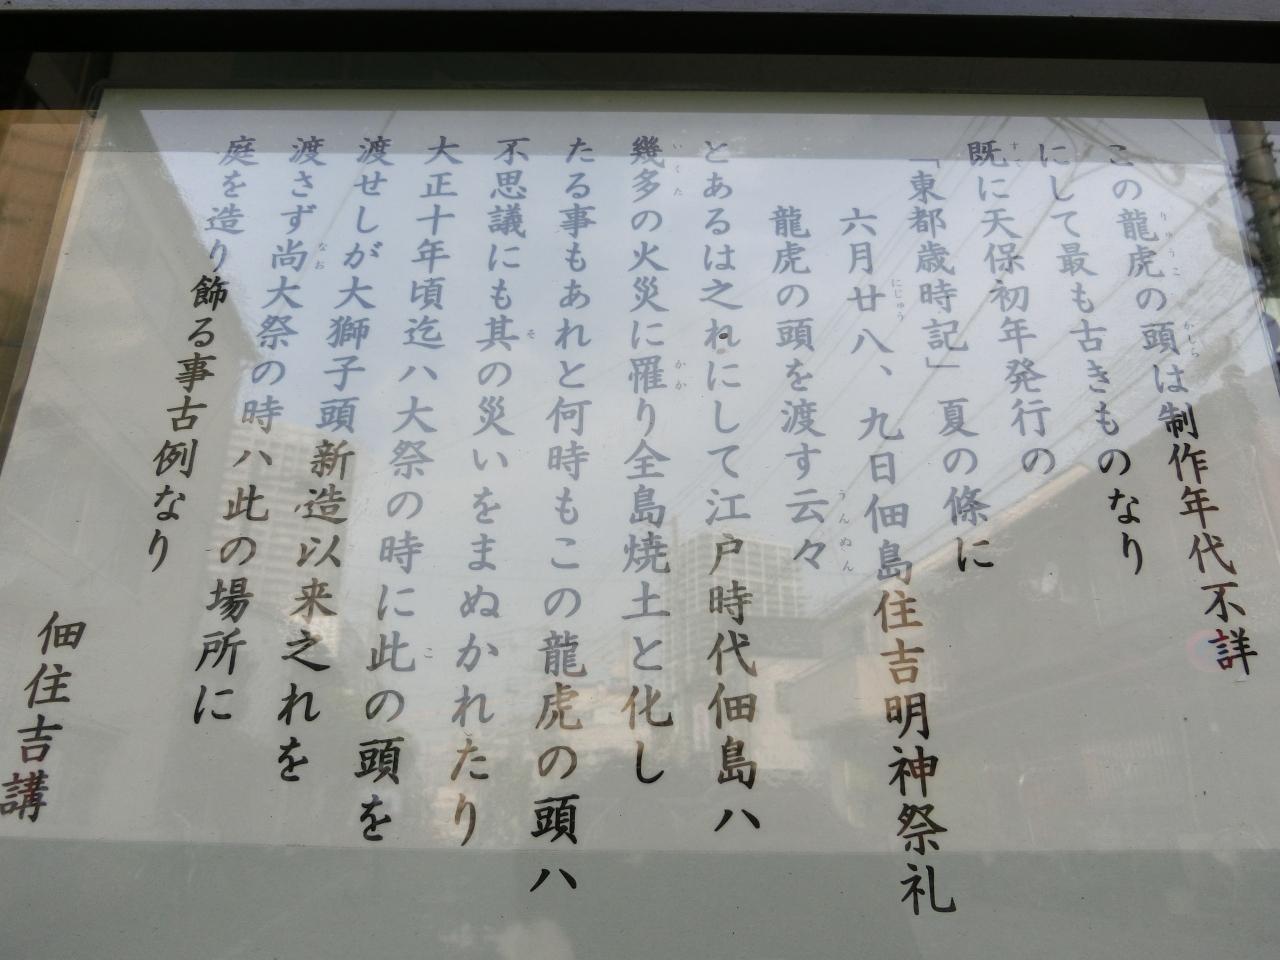 この龍虎の頭は制作年代不詳
にして最も古きものなり
既に天保初年発行の
「東都歳時記」夏の條に
六月廿八、九日佃島住吉明神祭礼
龍虎の頭を渡す云々
とあるは之れにして江戸時代佃島ハ
幾多の火災に罹り全島焼土と化し
たる事もあれと何時もこの龍虎の頭ハ
不思議にも其の災いをまぬかれたり
大正十年頃迄ハ大祭の時に此の頭を
渡せしが大獅子頭新造以来之れを
渡さず尚大祭の時ハ此の場所に
庭を造り飾る事古例なり
佃住吉講